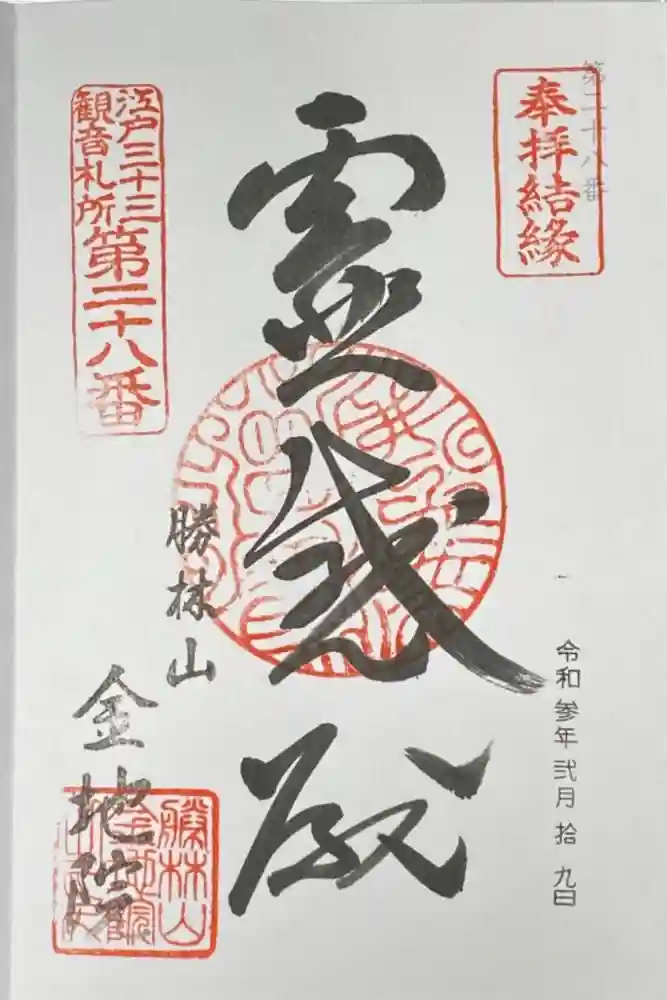 奉拝結縁
第二十八番
令和参年弐月拾九日
霊感殿
江戸三十三
観音札所
第二十八番
勝林山
金地院
勝林山
金地院